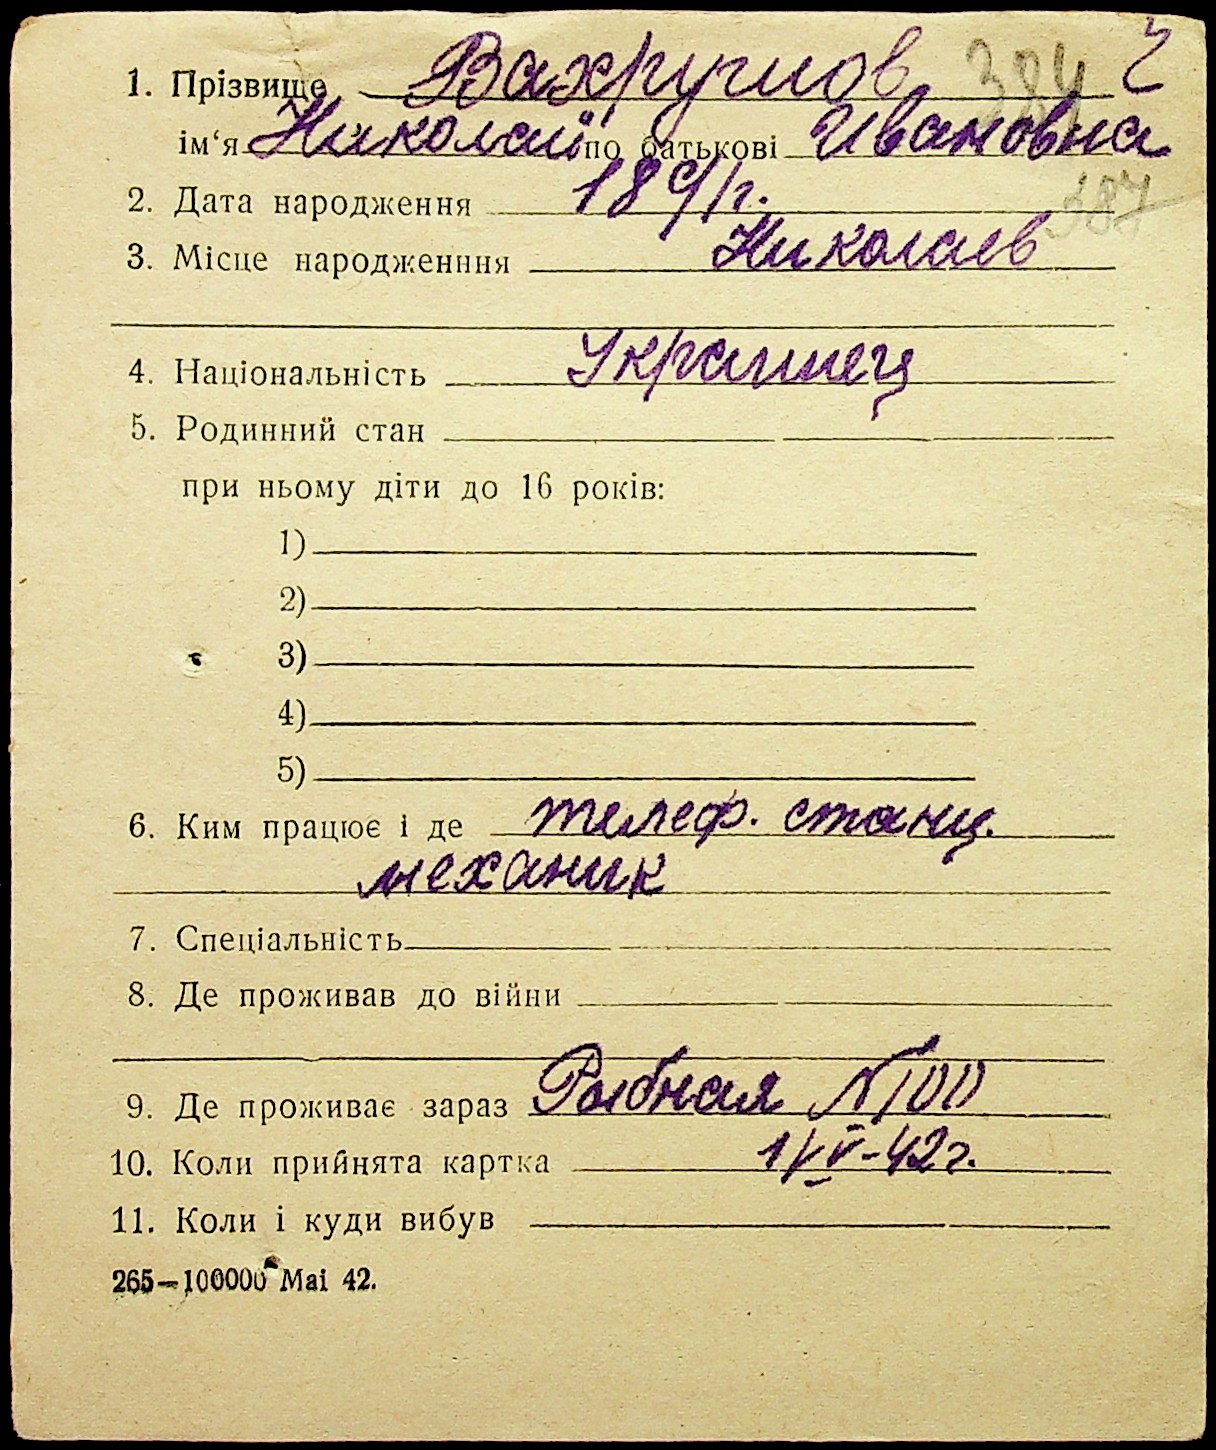 1. Прізвище Вахрушов 384 ч
ім‘я Николай по батькові Ивановна
2. Дата народження 1891 г. 387
3. Місце народженння Николаев
4. Національність Украинец
5. Родинний стан
при ньому діти до 16 років:
1)
2)
3)
4)
5)
6. Ким працює і де телеф. станц.
механик
7. Спеціальність
8. Де проживав до війни
9. Де проживає зараз Рыбная N100
10. Коли прийнята картка 1/VI-42 г.
11. Коли і куди вибув
265—100000 Mai 42.